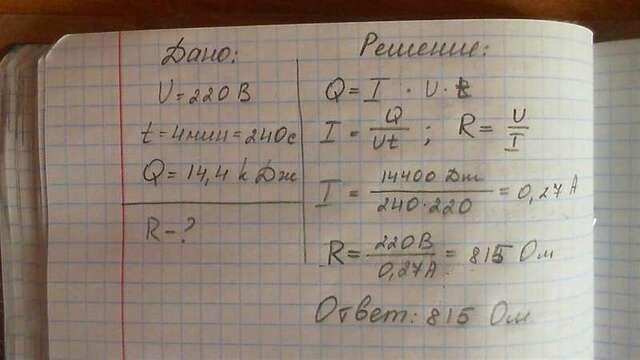 Дано:
U = 220 В
t = 4 мин = 240 с
Q = 14,4 к Дж
R - ?
Решение:
Q = I · U · t
I = Q / Ut ; R = U / I
I = 14400 Дж / 240 · 220 = 0,27 А
R = 220 В / 0,27 А = 815 Ом
Ответ: 815 Ом